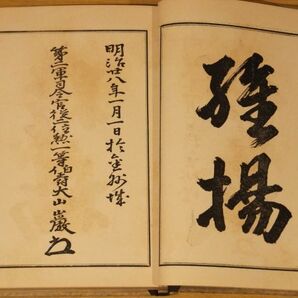 揚
明治廿八年一月一日於金州城
第二軍司令官従二位勲一等伯爵大山巌